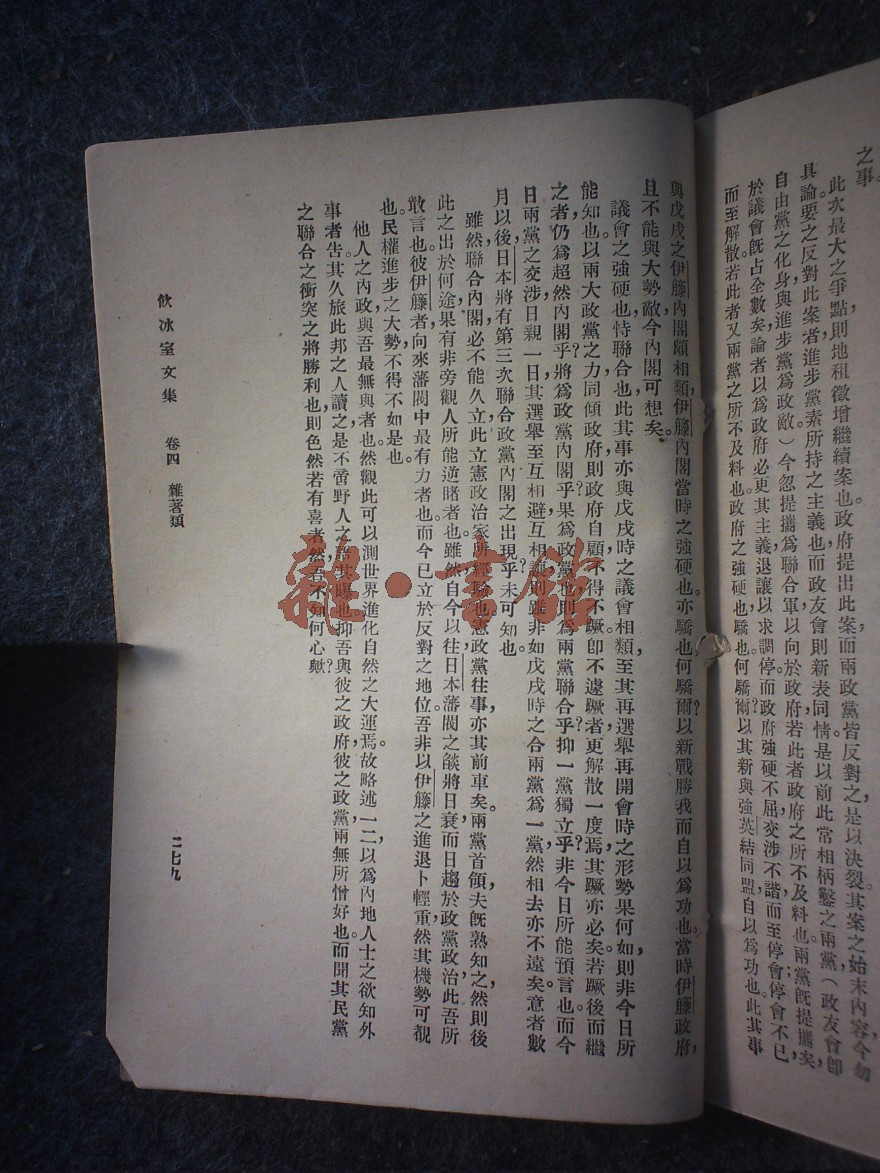 之事。
此次最大之爭點，則地租徵增繼續案也。政府提出此案，而兩政黨皆反對之，是以決裂。其案之始末內容，今勿
具論。要之反對此案者，進步黨素所持之主義也，而政友會則新表同情。是以前此常相柄鑿之兩黨，（政友會卽
自由黨之化身，與進步黨爲政敵）今忽提攜，爲聯合軍以向於政府。若此者，政府之所不及料也。兩黨旣提攜矣，
於議會旣占全數矣，論者以爲政府必更其主義，退讓以求調停。而政府強硬不屈，交涉不諧，而至停會；停會不已，
而至解散。若此者，又兩黨之所不及料也。政府之強硬也，驕也。何驕爾？以其新與強英結同盟，自以爲功也。此其事
與戊戌之伊藤內閣頗相類。伊藤內閣當時之強硬也，亦驕也。何驕爾？以新戰勝我而自以爲功也。當時伊藤政府，
且不能與大勢敵，今內閣可想矣。
議會之強硬也，恃聯合也。此其事亦與戊戌時之議會相類。至其再選舉再開會時之形勢果何如，則非今日所
能知也。以兩大政黨之力，同傾政府，則政府自顧不得不蹶；卽不遽蹶者，更解散一度焉，其蹶亦必矣。若蹶後而繼
之者，仍爲超然內閣乎？將爲政黨內閣乎？果爲政黨也，則爲兩黨聯合乎？抑一黨獨立乎？非今日所能預言也。而今
日兩黨之交涉日親一日，其選舉至互相避互相讓，則雖非如戊戌時之合兩黨爲一黨，然相去亦不遠矣。意者數
月以後，日本將有第三次聯合政黨內閣之出現乎？未可知也。
雖然，聯合內閣，必不能久立，此立憲政治家所經驗也。憲政黨往事，亦其前車矣。兩黨首領，夫旣熟知之，然則後
此之出於何途，果有非旁觀人所能逆睹者也。雖然，自今以往，日本藩閥之燄，將日衰而日趨於政黨政治，此吾所
敢言也。彼伊藤者，向來藩閥中最有力者也。而今已立於反對之地位，吾非以伊藤之進退卜輕重，然其機勢可覩
也。民權進步之大勢，不得不如是也。
他人之內政，與吾最無與者也。然觀此可以測世界進化自然之大運焉。故略述一二，以爲內地人士之欲知外
事者告。其久旅此邦之人讀之，是不啻野人之語其曝也。抑吾與彼之政府，彼之政黨，兩無所憎好也。而聞其民黨
之聯合之衝突之將勝利也，則色然若有喜者然，吾不知何心歟？
飲冰室文集　卷四　雜著類　二七九
雜·書館